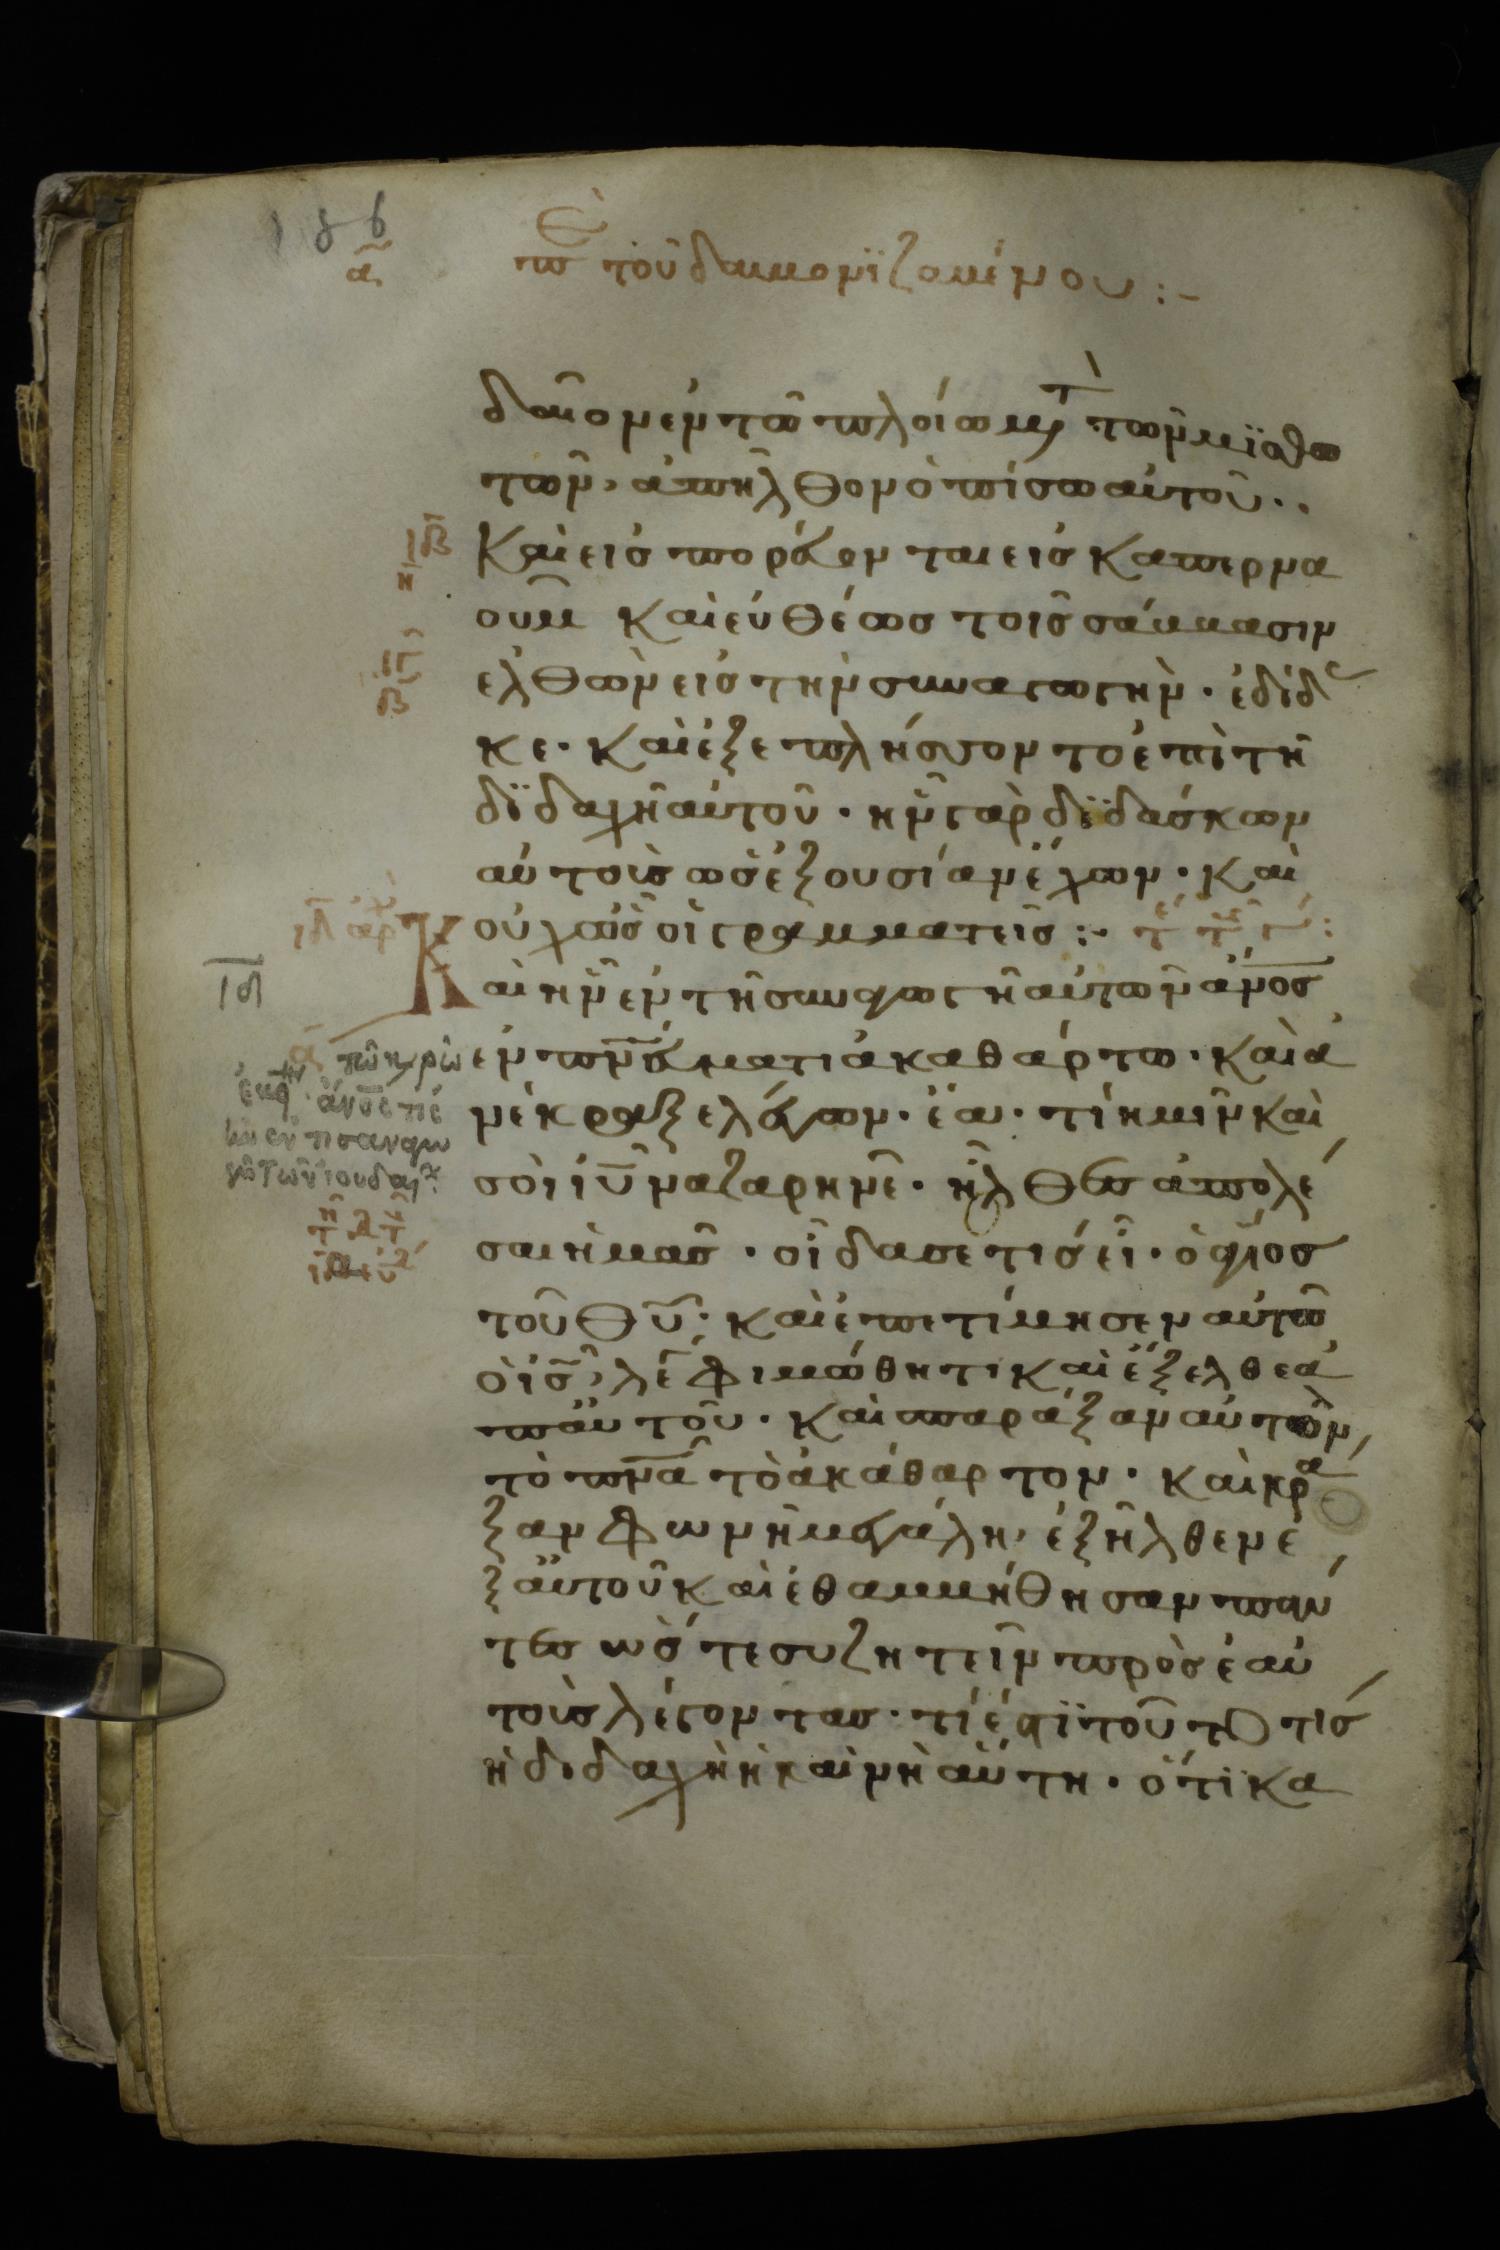 186
α
περὶ τοῦ δαιμονϊζομένου :-
δαῖον ἐν τῶ πλοίω μετὰ τῶν μϊσθω
τῶν, ἀπῆλθον ὀπίσω αὐτοῦ..
ΙΒ
Καὶ εἰσπορεύονται εἰς καπερνα
η
οὺμ καὶ εὐθέως τοῖς σάββασιν
ΙΓ
ἐλθὼν εἰς τὴν συναγωγὴν. ἐδίδασ
Β
κε. καὶ ἐξεπλήσσοντο ἐπὶ τῆ
δϊδαχῆ αὐτοῦ. ἦν γὰρ δϊδάσκων
αὐτοὺς ὡς ἐξουσίαν ἔχων. καὶ
οὐχ ὡς οἱ γραμματεῖς :-
ΙΔ
Καὶ ἦν ἐν τῆ συναγωγῆ αὐτῶν ἄνος
ἐν πνεύματι ἀκαθάρτω. καὶ ἀ
νέκραξε λέγων. ἔα. τί ἡμῖν καὶ
σοὶ ἰῦ ναζαρηνέ. ἦλθες ἀπολέ
σαι ἡμᾶς. οἶδα σε τίς εἶ. ὁ ἅγιος
τοῦ θῦ. καὶ ἐπετίμησεν αὐτῶ
ὁ ἰς, λέγων φιμώθητι καὶ ἔξελθε ἀ
π αὐτοῦ. καὶ σπαράξαν αὐτὸν,
τὸ πνᾶ τὸ ἀκάθαρτον. καὶ κρά
ξαν φωνῆ μεγάλη, ἐξῆλθεν ἐ
ξ αὐτοῦ καὶ ἐθαμβήθησαν πάν
τες ὥστε συζητεῖν πρὸς ἑαυ
τοὺς λέγοντας. τί ἐστϊ τοῦτο τίς
ἡ διδαχὴ ἡ καινὴ αὕτη. ὅτϊ κα